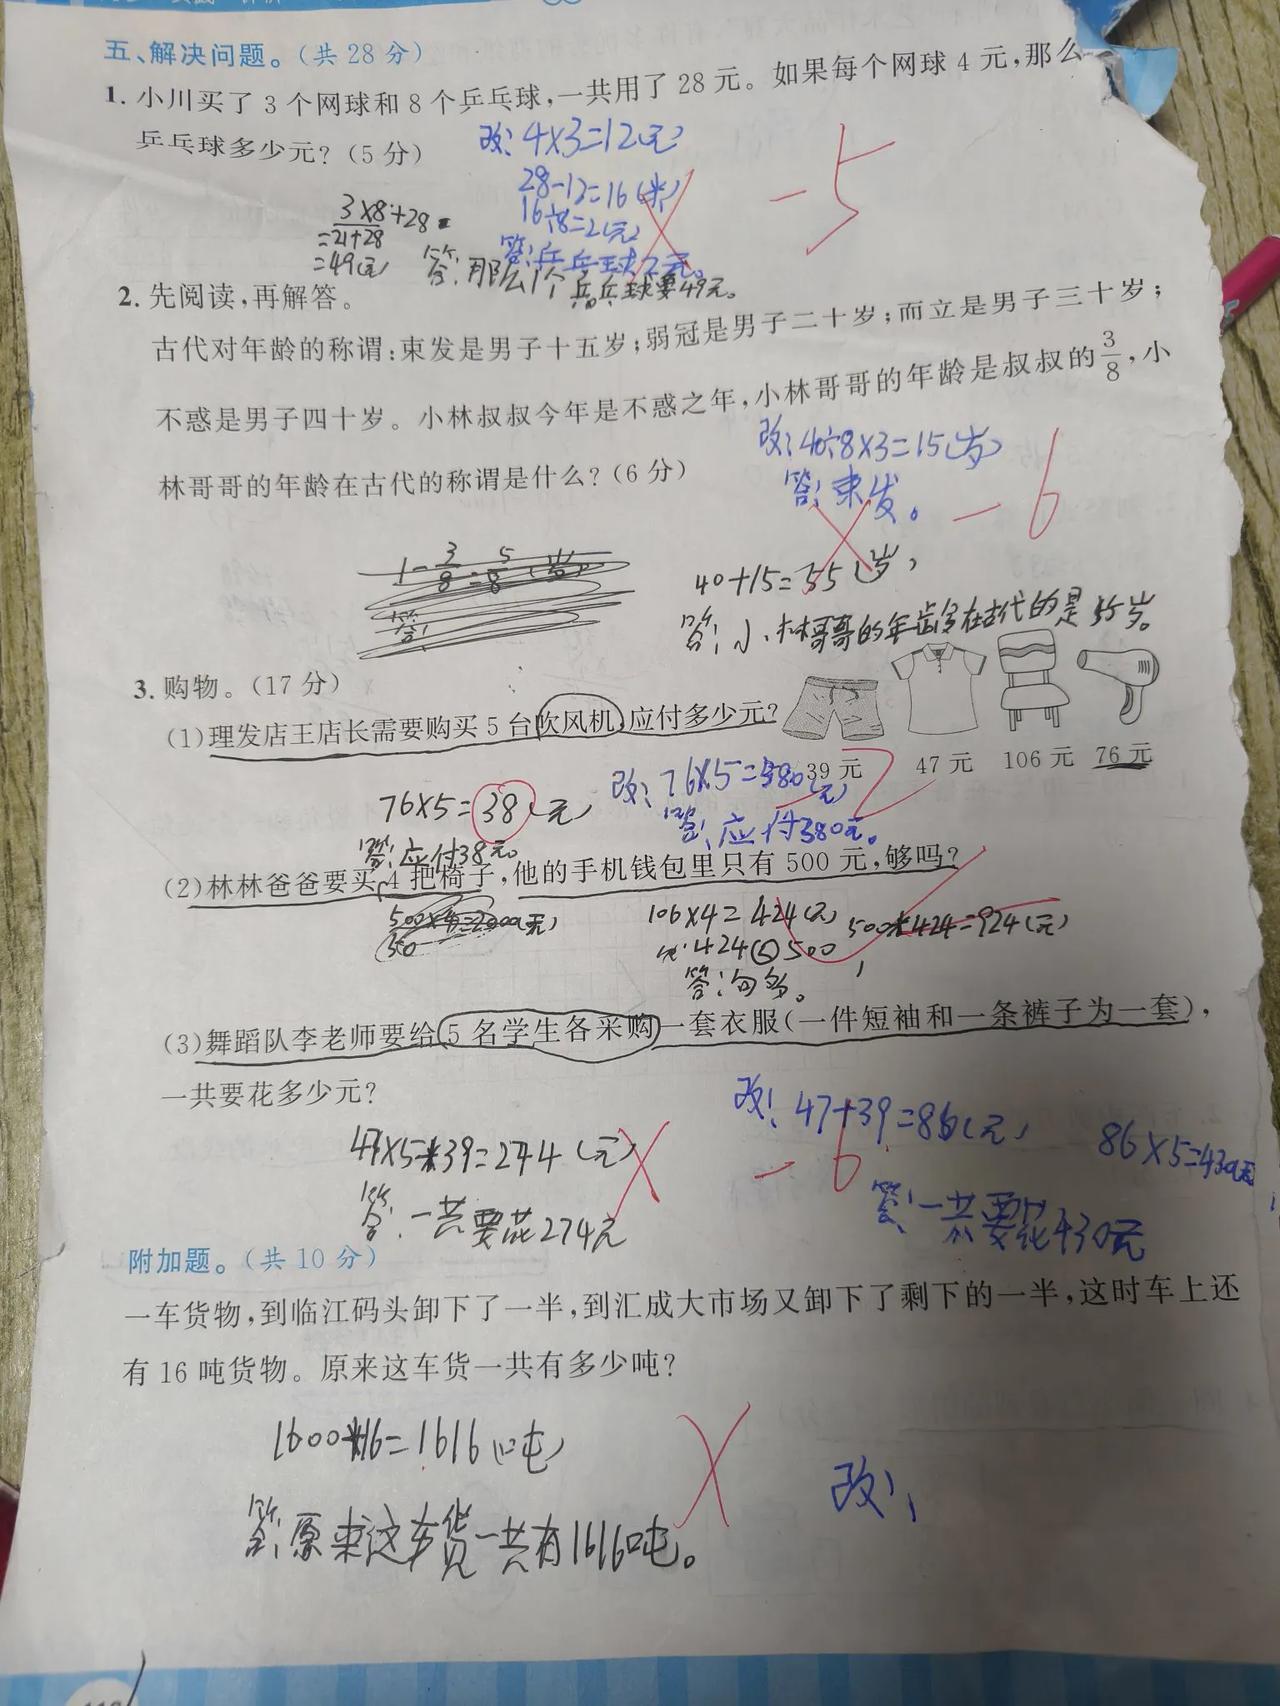 五、解决问题。(共 28 分)
1. 小川买了 3 个网球和 8 个乒乓球,一共用了 28 元。如果每个网球 4 元,那么
乒乓球多少元?(5 分)
改: 4×3=12(元)
28-12=16(米)
16÷8=2(元)
答:乒乓球2元。
-5
3×8+28
=21+28
=49(元)
答:那么1个乒乓球要49元。
2. 先阅读,再解答。
古代对年龄的称谓:束发是男子十五岁;弱冠是男子二十岁;而立是男子三十岁;
不惑是男子四十岁。小林叔叔今年是不惑之年,小林哥哥的年龄是叔叔的3/8,小
林哥哥的年龄在古代的称谓是什么?(6 分)
改:40÷8×3=15(岁)
答:束发。
-6
1-3/8=5/8
答:
40+15=55(岁)
答:小林哥哥的年龄在古代的是55岁。
3. 购物。(17 分)
(1)理发店王店长需要购买 5 台吹风机,应付多少元?
39 元 47 元 106 元 76 元
76×5=38(元)
答:应付38元。
改:76×5=380(元)
答:应付380元。
-2
(2)林林爸爸要买 4 把椅子,他的手机钱包里只有 500 元,够吗?
500×4=2000(元)
106×4=424(元)
424<500
答:句多。
500+424=924(元)
(3)舞蹈队李老师要给 5 名学生各采购一套衣服(一件短袖和一条裤子为一套),
一共要花多少元?
47×5+39=274(元)
答:一共要花274元
改: 47+39=86(元)
86×5=430(元)
答:一共要花430元
-6
附加题。(共 10 分)
一车货物,到临江码头卸下了一半,到汇成大市场又卸下了剩下的一半,这时车上还
有 16 吨货物。原来这车货一共有多少吨?
1600+16=1616(吨)
答:原来这车货一共有1616吨。
改: